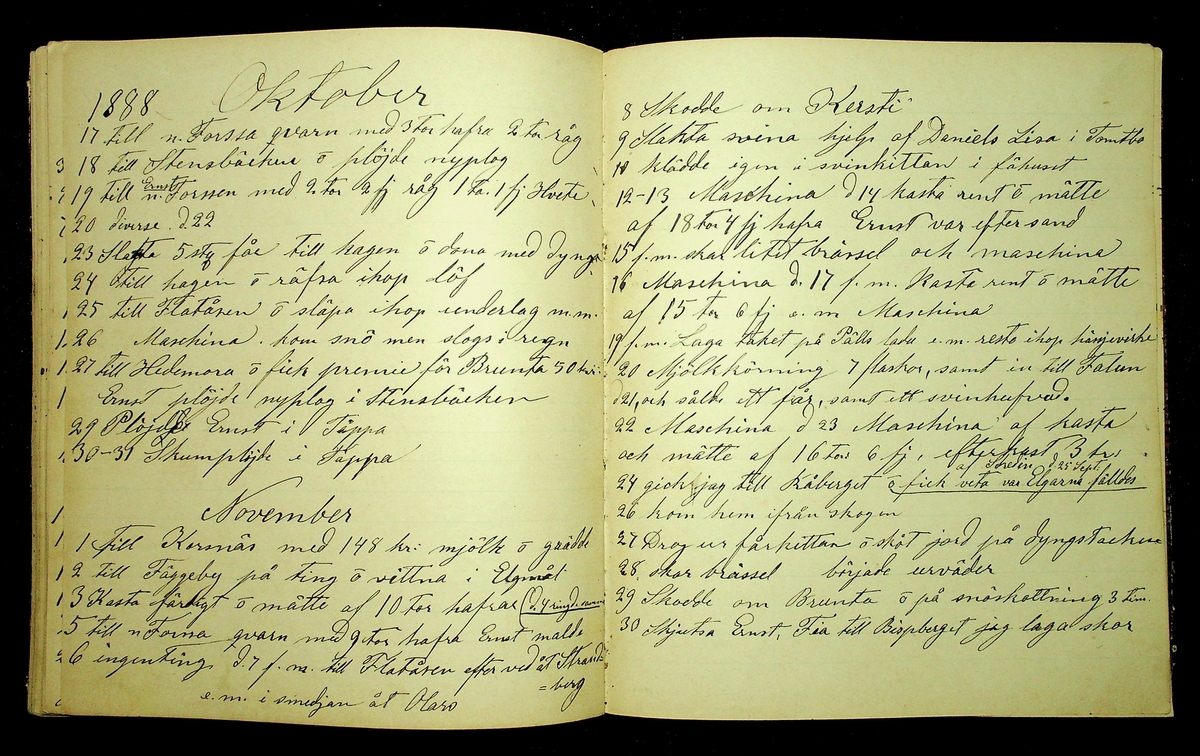 1888 Oktober
17 till n. Forssa qvarn med 3 tor hafra 2 tor råg
18 till Stensbäcken ō plöjde nyplog
19 till Ernst n. Forssen med 2 tor 2 fj råg 1 ta. 1 fj Hvete
20 diverse. d 22
23 5 sty fåe till hagen ō dona med dynga
24 till hagen ō räfsa ihop löf
25 till Flatåsen ō släpa ihop underlag m.m.
26 Maschina. kom snö men slogs i regn
27 till Hedemora ō fick premie för Brunta 50 kr:
Ernst plöjde nyplog i Stensbäcken
29 Plöjde Ernst i Täppa
30-31 Skumplöjde i Täppa
November
1 till Korsnäs med 148 kr: mjölk ō grädde
2 till Fäggeby på ting ō vittna i Elgmål
3 Kasta färdigt ō mätte af 10 tor hafrae (d. 4
5 till n Forna qvarn med 9 tor hafra Ernst malde
6 ingenting d. 7 f.m. till Flatåsen efter ved åt Strand
=berg
e.m. i smedjan åt Olars
8 Skodde om Kersti
9 Slakta svina hjelp af Daniels Lisa i Tomtbo
10 klädde igen i svinkittan i fähuset
12-13 Maschina d 14 kasta rent ō mätte
af 18 tor 4 fj hafra Ernst var efter sand
15 f.m. skar litet brässel och maschina
16 Maschina d. 17 f.m. Kasta rent ō mätte
af 15 tor 6 fj e.m Maschina
19 f.m. Laga taket på Pålls lada e.m. resto ihop hängivirke
20 Mjölkkörning 7 flaskor, samt in till Falun
d 21, och sålde ett får, samt ett svinhufvud.
22 Maschina d 23 Maschina af kasta
och mätte af 16 tor 6 fj, efterkast 3 tr:
af d 25 Sept.
24 gick jag till Kåberget ō fick veta var Elgarna fälldes
26 kom hem ifrån skogen
27 Drog ur fårkittan ō sköt jord på dyngstacken
28. skar brässel började urväder
29 Skodde om Brunta ō på snöskottning 3 tim.
30 Skjutsa Ernst, Fia till Bispberget jag laga skor